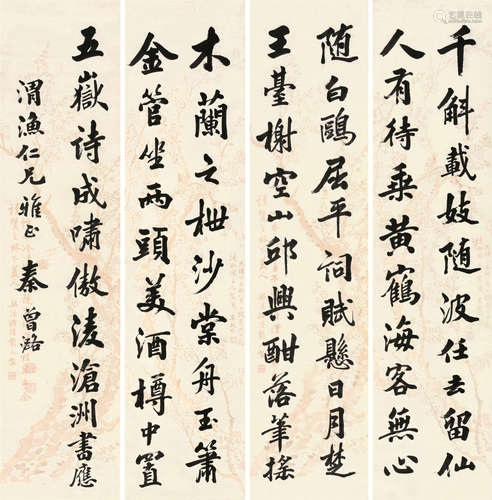 千斛載妓随波任去留仙
人有待乘黃鶴海客無心
随白鷗屈平詞賦懸日月楚
王臺榭空山邱興酣落筆摇
木蘭之枻沙棠舟玉簫
金管坐兩頭美酒樽中置
五嶽詩成嘯傲淩滄洲書應
渭漁仁兄雅正
秦曾潞